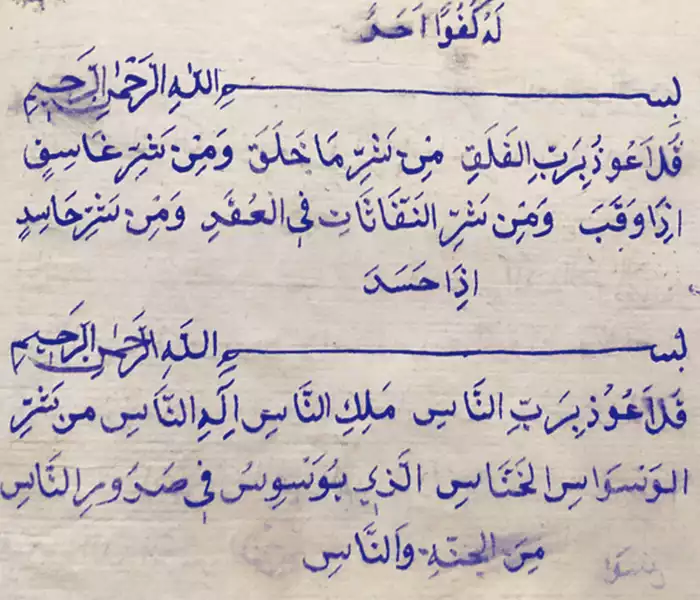 لَهُ كُفُوًا اَحَدٌ
بِسْــــــــــمِ اللّٰهِ الرَّحْمٰنِ الرَّحِيمِ
قُلْ اَعُوذُ بِرَبِّ الفَلَقِ مِنْ شَرِّ مَا خَلَقَ وَمِنْ شَرِّ غَاسِقٍ
اِذَا وَقَبَ وَمِنْ شَرِّ النَفَاثَاتِ فِي العُقَدِ وَمِنْ شَرِّ حَاسِدٍ
اِذَا حَسَدَ
بِسْــــــــــمِ اللّٰهِ الرَّحْمٰنِ الرَّحِيمِ
قُلْ اَعُوذُ بِرَبِّ النَّاسِ مَلِكِ النَّاسِ اِلَهِ النَّاسِ مِن شَرِّ
الوَسْوَاسِ الخَنَّاسِ الَّذِي يُوَسْوِسُ فِي صُدُورِ النَّاسِ
مِنَ الجِنَّةِ وَالنَّاسِ